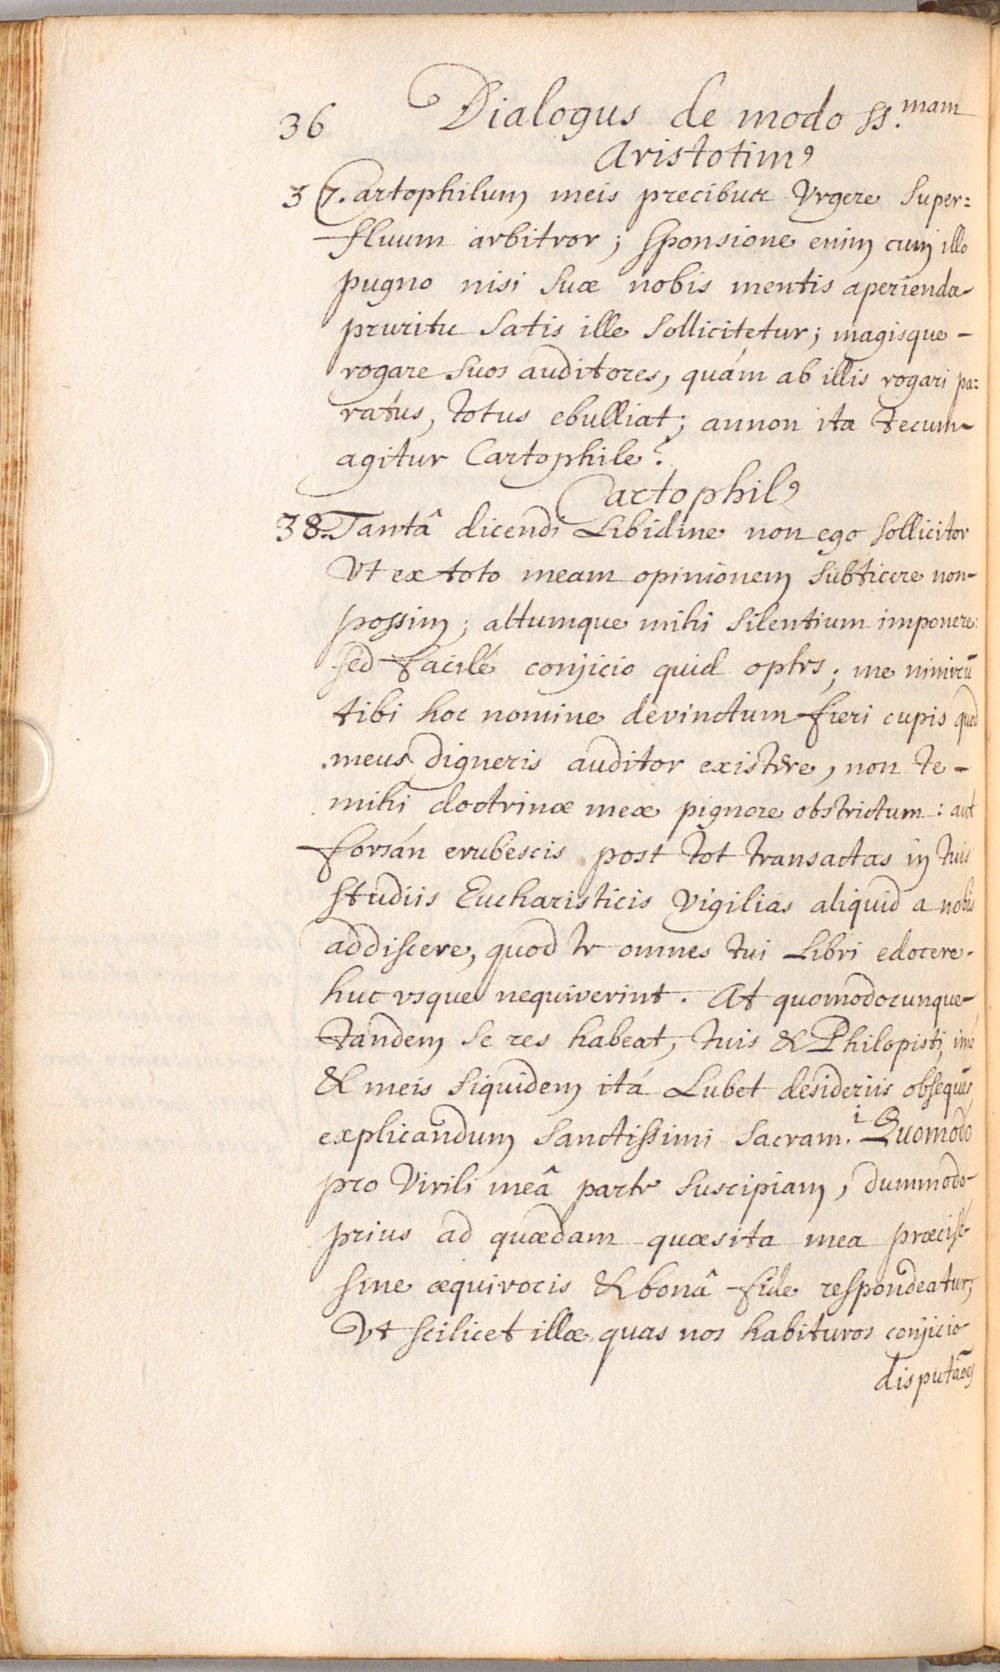 36 Dialogus de modo ss.mam
Aristotimꝰ
37. Cartophilum meis precibus Vrgere super=
fluum arbitror; sponsione enim cum illo
pugno nisi suæ nobis mentis aperiendæ
pruritu satis ille sollicitetur; magisque
rogare suos auditores, quám ab illis rogari pa=
ratus, totus ebulliat; annon ita tecum
agitur Cartophile?
Cartophilꝰ
38. Tantâ dicendi Libidine non ego sollicitor
Vt ex toto meam opinionem subticere non
possim; altumque mihi silentium imponere:
sed facilé conjicio quid optes; me nimirū
tibi hoc nomine devinctum fieri cupis quod
meus digneris auditor existere, non te
mihi doctrinæ meæ pignore obstrictum: aut
forsán erubescis post tot transactas in tuis
studiis Eucharisticis Vigilias aliquid a nobis
addiscere, quod te omnes tui Libri edocere
huc vsque nequiverint. At quomodocunque
tandem se res habeat, tuis & Philopisti, imó
& meis siquidem itá Lubet desideriis obsequēs
explicandum sanctissimi sacram.i Quomodo
pro Virili meâ parte suscipiam, dummodo
prius ad quædam quæsita mea præcisé
sine æquivocis & bonâ fide respondeatur,
Vt scilicet illæ quas nos habituros conjicio
disputāoes